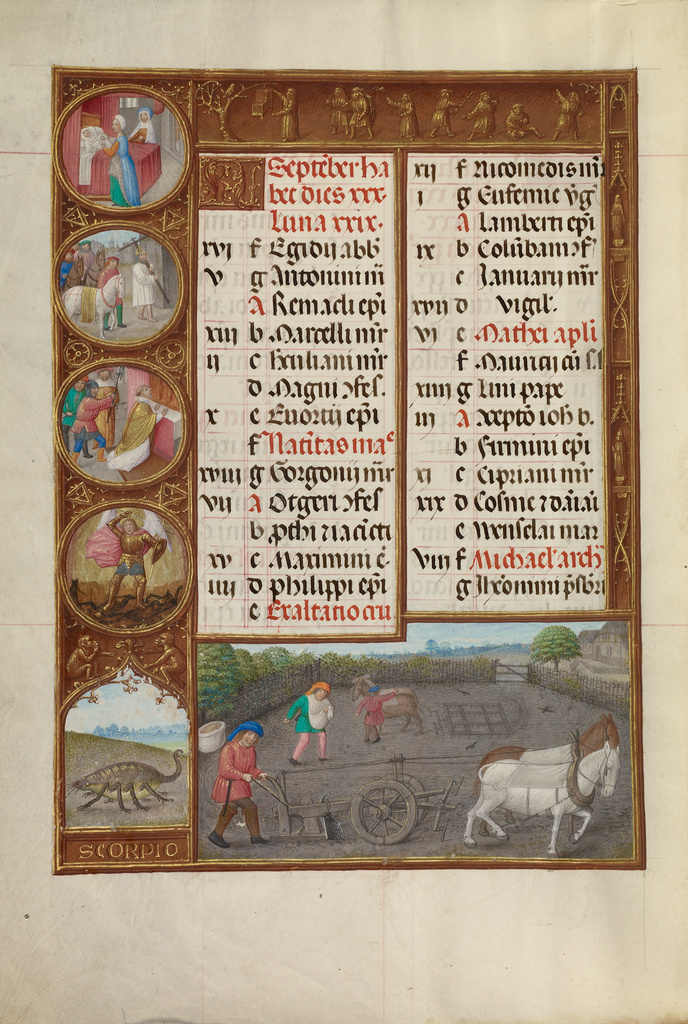 KL Septēber ha
bet dies xxx.
Luna xxix.
xvi f Egidij abb
v g Antonini m̄
A Remacli epi
xiii b Marcelli mr̄
ii c
d Magni ɔfes.
x e Euortij epi
f Natitas ma
xviii g Gorgonij mr̄
vii A Otgeri ɔfes
b ꝓthi z iacīcti
xv c Maximini ē
iiii d philippi epi
e Exaltatio cru
xii f Nicomedis mr̄
i g Eufemie v̄g
A Lamberti epi
ix b Colūbani ɔf
c Januarij mr̄
xvii d vigil.
vi e Mathei apli
f Mauricij cū s.
xiiii g lini pape
iii A
b firmini epi
xi c Cipriani mr̄
xix d Cosme z
e Wenselai mar
viii f Michael arch
g
SCORPIO